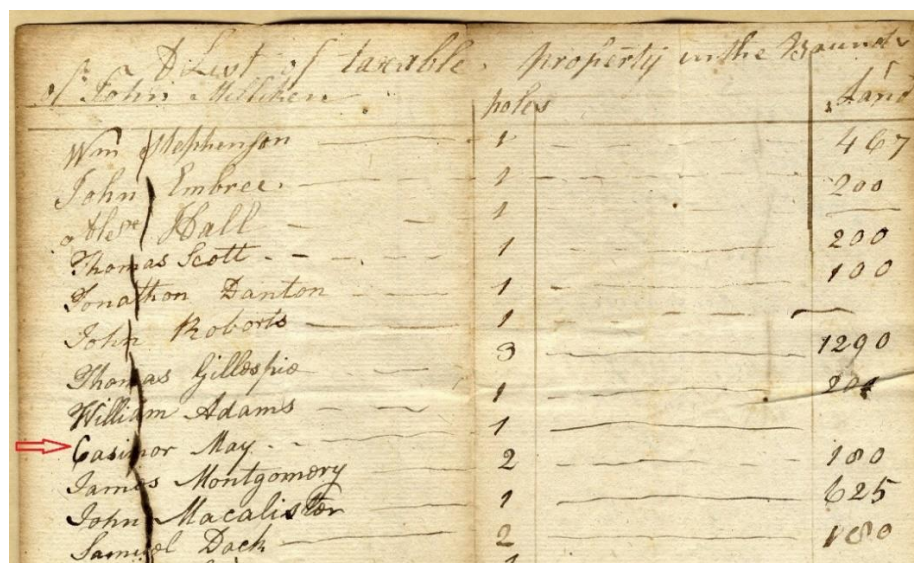 A List of taxable property in the Bounds
of John Milliken
poles Land
Wm Stephenson 1 467
John Embree 1 200
Hall 1
Thomas Scott 1 200
Jonathon Danton 1 100
John Roberts 1
Thomas Gillespie 3 1290
William Adams 1
Casimor May 1
James Montgomery 2 180
John Macalister 1 625
Samuel Dock 2 180